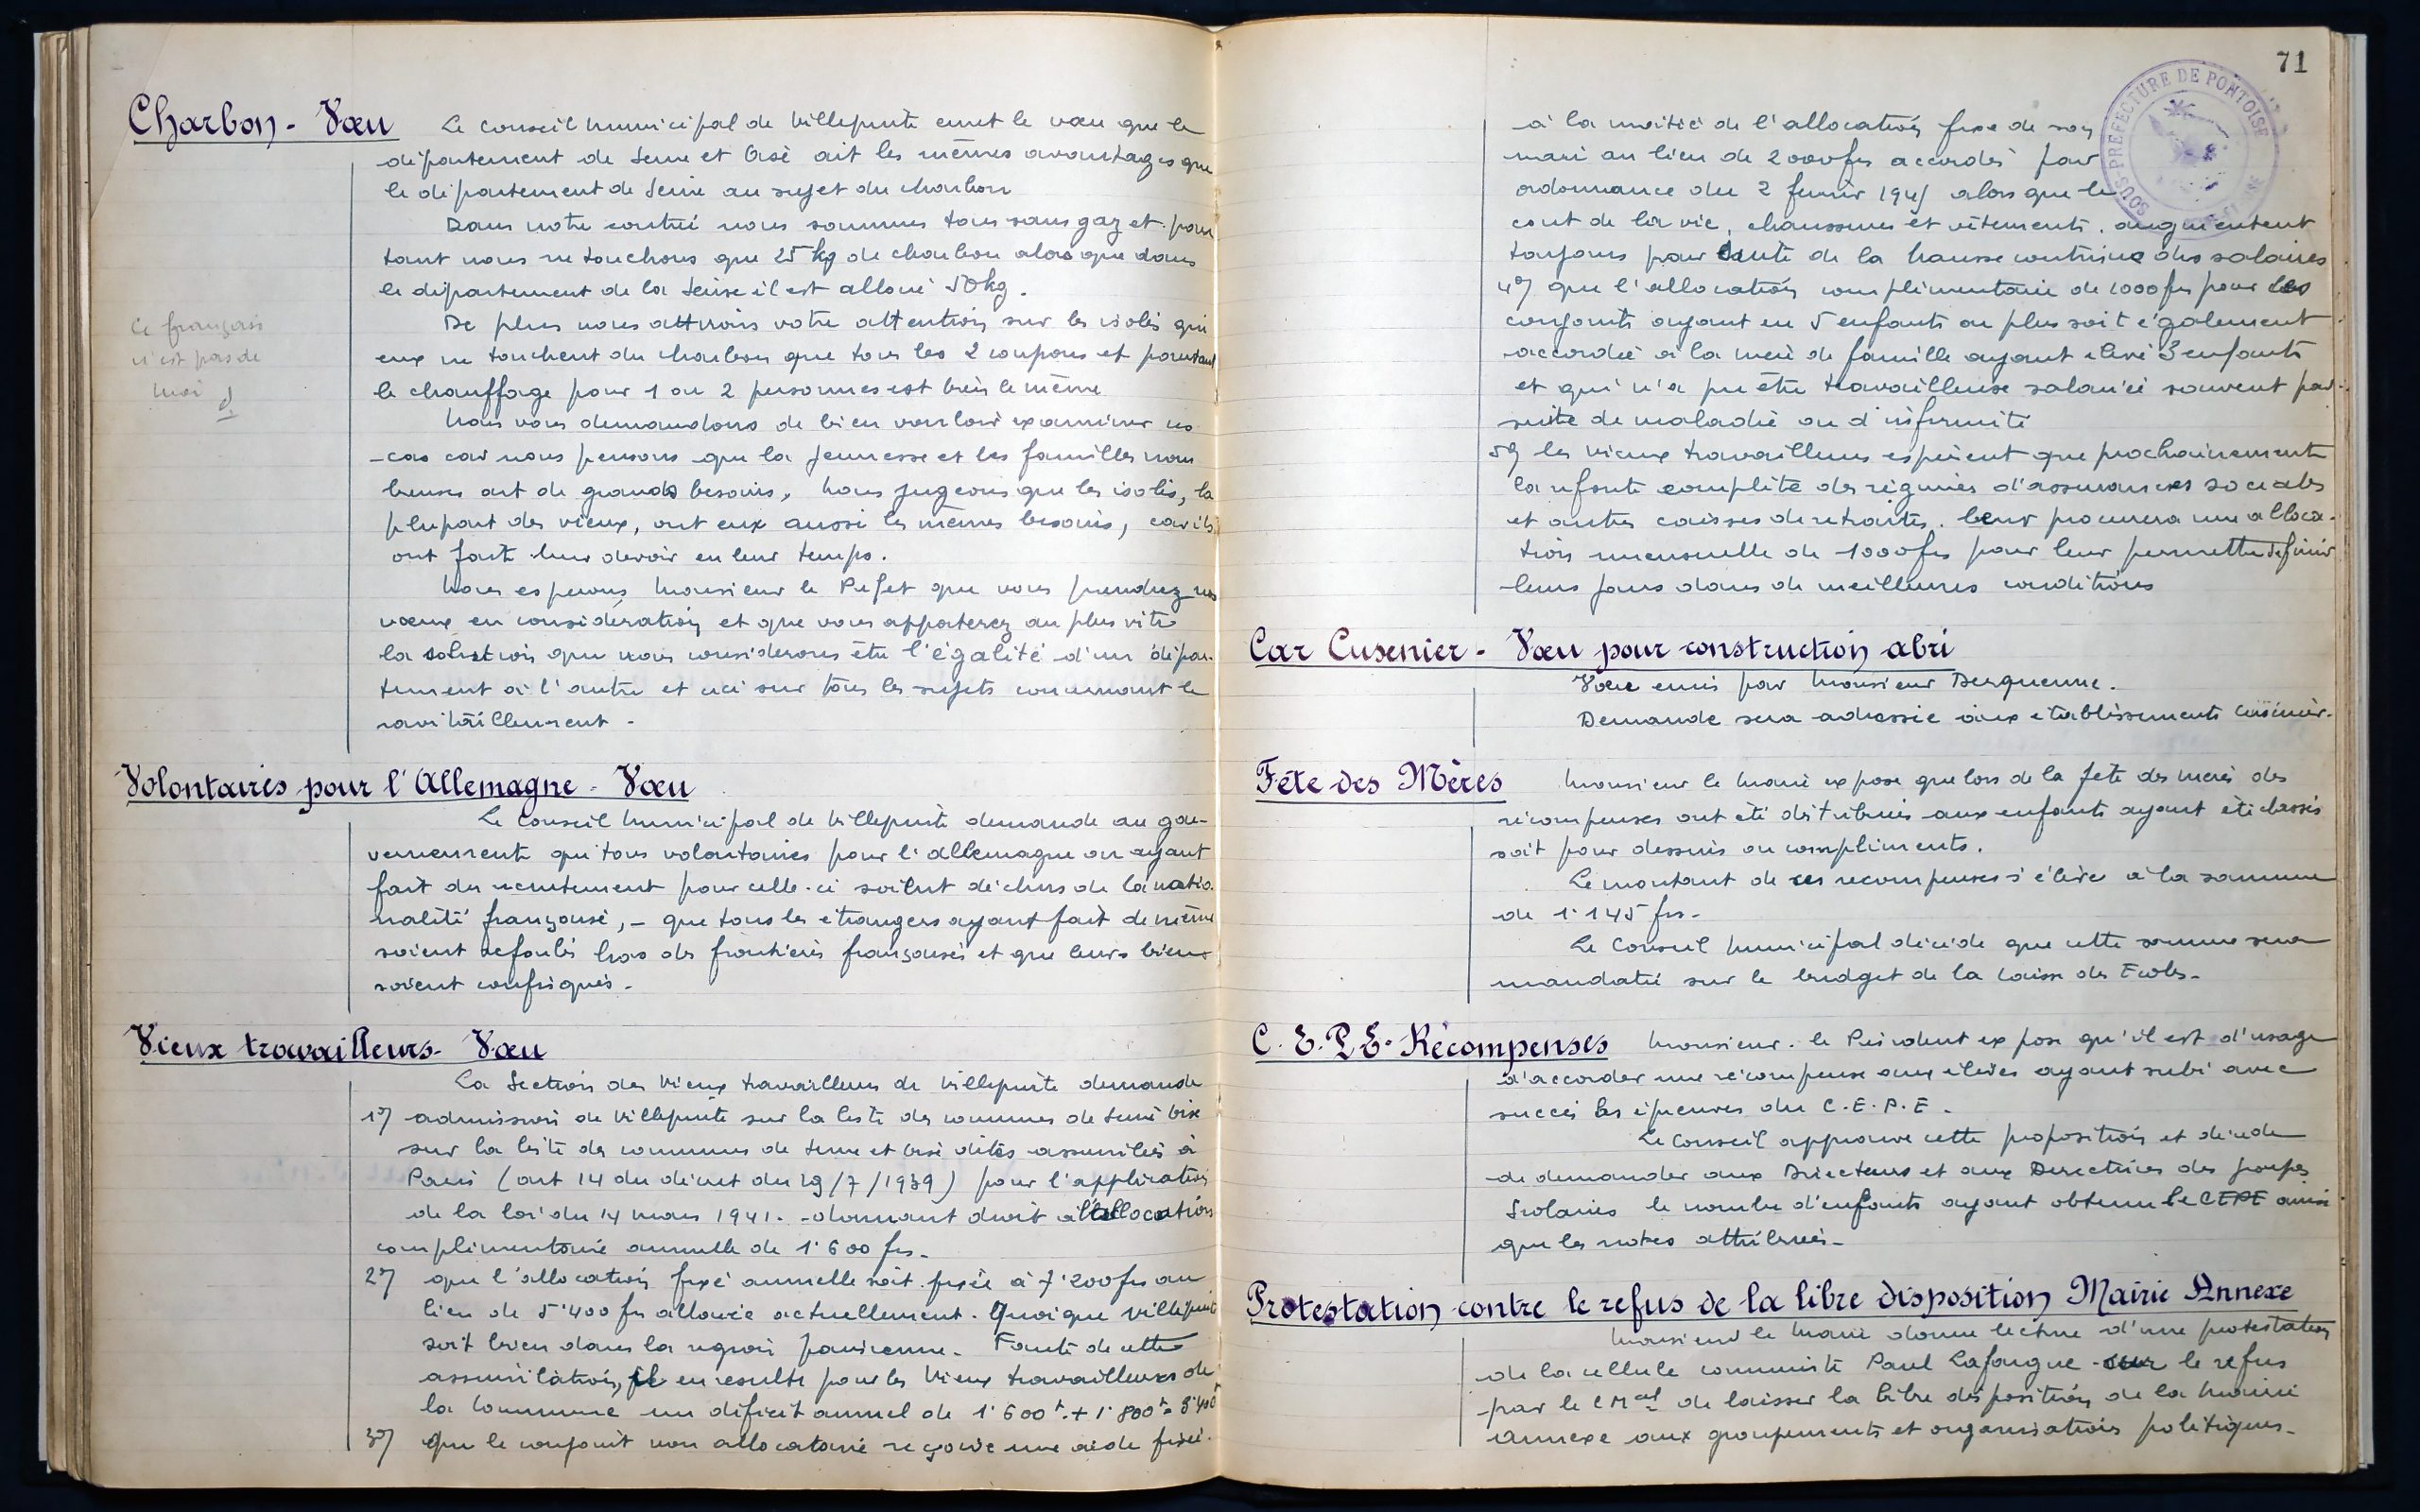 Charbon - Vœu
Le Conseil Municipal de Villepinte emet le vœu que le
département de Seine et Oise ait les mêmes avantages que
le département de Seine au sujet du charbon
Dans notre contrée nous sommes tous sans gaz et pour
tant nous ne touchons que 25 kg de charbon alors que dans
le département de la Seine il est alloué 50 kg.
De plus nous attirons votre attention sur les isolés qui
eux ne touchent du charbon que tous les 2 coupons et pourtant
le chauffage pour 1 ou 2 personnes est bien le même
Ce français
n'est pas de
moi
Nous vous demandons de bien vouloir examiner ces
cas car nous pensons que la jeunesse et les familles nom
breuses ont de grands besoins, nous jugeons que les isolés, la
plupart des vieux, ont eux aussi les mêmes besoins, car ils
ont fait leur devoir en leur temps.
Nous esperons Monsieur le Préfet que vous prendrez nos
vœux en considération et que vous apporterez au plus vite
la solution que nous considerons être l'égalité d'un dépar-
tement à l'autre et ceci sur tous les sujets concernant le
ravitaillement -
Volontaires pour l'Allemagne - Vœu
Le Conseil Municipal de Villepinte demande au gou-
vernement que tous volontaires pour l'Allemagne ou ayant
fait du recrutement pour celle-ci soient déchus de la natio
nalité française, - que tous les étrangers ayant fait de même
soient refoulés hors des frontières françaises et que leurs biens
soient confisqués -
Vieux travailleurs - Vœu
La Section des Vieux travailleurs de Villepinte demande
1°) admission de Villepinte sur la liste des communes de Seine Oise
sur la liste des communes de Seine et Oise dites assimilées à
Paris (art 14 du décret du 29/7/1939) pour l'application
de la loi du 14 mars 1941 - donnant droit à l'allocation
complémentaire annuelle de 1.600 frs -
2°) que l'allocation fixe annuelle soit fixée à 7.200 frs au
lieu de 5.400 frs allouée actuellement. Quoique Villepinte
soit bien dans la region parisienne - Faute de cette
assimilation, il en resulte pour les Vieux travailleurs de
la Commune un déficit annuel de 1.600 + 1.800 = 3.400
3°) Que le conjoint non allocataire reçoive une aide fixée
71
SOUS-PREFECTURE DE PONTOISE
à la moitié de l'allocation fixe de son
mari au lieu de 2000 frs accordés par
ordonnance du 2 fevrier 1945 alors que le
cout de la vie, chaussures et vêtements, augmentent
toujours par suite de la hausse continue des salaires
4°) que l'allocation complémentaire de 1000 frs pour les
conjoints ayant eu 5 enfants ou plus soit également
accordée à la mère de famille ayant élevé 3 enfants
et qui n'a pu être travailleuse salariée souvent par
suite de maladie ou d'infirmité
5°) les vieux travailleurs espèrent que prochainement
la refonte complète des régimes d'assurances sociales
et autres caisses de retraites, leur procurera une alloca-
tion mensuelle de 1000 frs pour leur permettre de finir
leurs jours dans de meilleures conditions
Car Cusenier - Vœu pour construction abri
Vœu emis par Monsieur Derquenne.
Demande sera adressée aux établissements Cusenier.
Fête des Mères
Monsieur le Maire expose que lors de la fete des meres des
récompenses ont été distribuées aux enfants ayant été classés
soit pour dessins ou compliments.
Le montant de ces recompenses s'élève à la somme
de 1.145 frs -
Le Conseil Municipal décide que cette somme sera
mandatée sur le budget de la Caisse des Ecoles -
C.E.P.E. Récompenses
Monsieur le Président expose qu'il est d'usage
d'accorder une récompense aux élèves ayant subi avec
succès les épreuves du C.E.P.E -
Le Conseil approuve cette proposition et décide
de demander aux Directeurs et aux Directrices des groupes
Scolaires le nombre d'enfants ayant obtenu le CEPE ainsi
que les notes attribuées -
Protestation contre le refus de la libre disposition Mairie Annexe
Monsieur le Maire donne lecture d'une protestation
de la cellule communiste Paul Lafargue sur le refus
par le C Mal de laisser la libre disposition de la Mairie
Annexe aux groupements et organisations politiques -